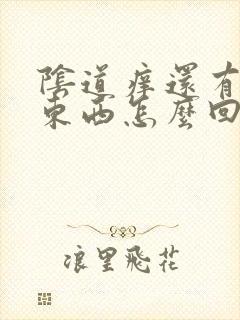 陰道痒還有
東西怎麼回
浪里飛花